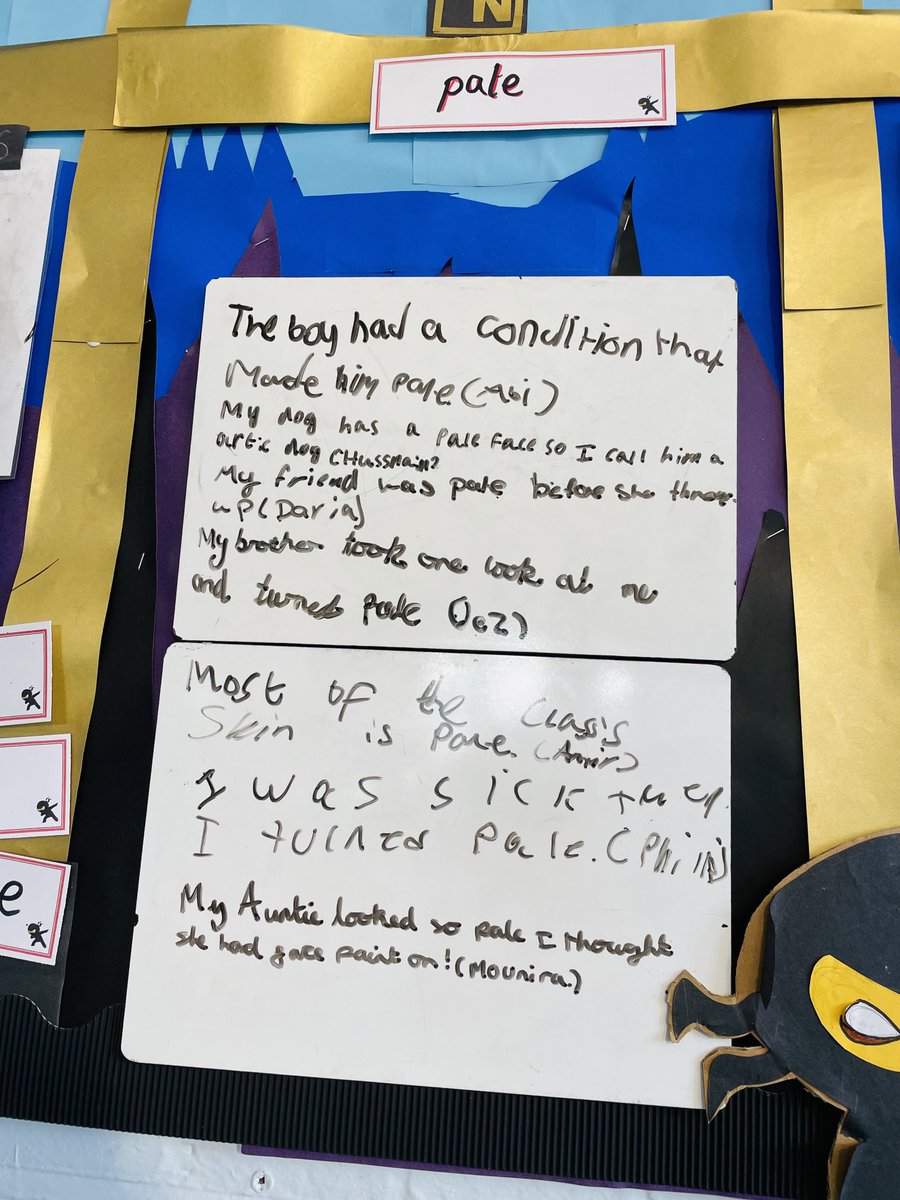 N
pale
S
The boy had a condition that
Made him pale (Abi)
My dog has a pale face so I call him a
artic dog (Hussnain)
My friend was pale before she threw
up (Daria)
My brother took one look at me
and turned pale
Most of the class's
Skin is Pale. (Amir)
I was sick then
I turned Pale. (Philip)
My Auntie looked so pale I thought
she had face paint on! (Mounira)
e